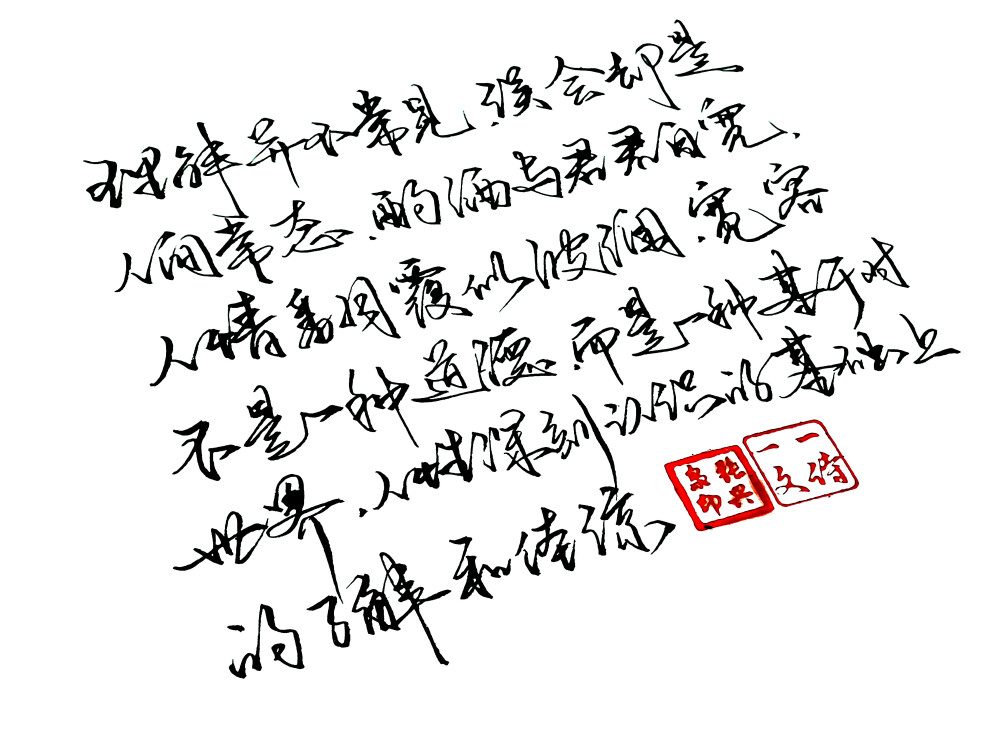 理解并不常见,误会却是
人间常态.酌酒与君君自宽,
人情翻覆似波澜.宽容
不是一种道德.而是一种基于对
世界,人性深刻认识的基础上
的了解和体谅
张兴泉印
一一文诗